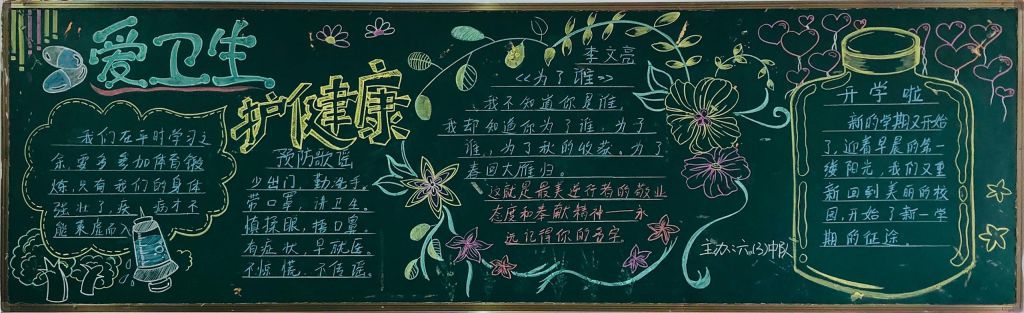 爱卫生
护健康
我们在平时学习之
余,要多参加体育锻
炼,只有我们的身体
强壮了,疾病才不
能乘虚而入
预防歌谣
少出门,勤洗手。
带口罩,讲卫生。
慎揉眼,捂口鼻。
有症状,早就医。
不惊慌,不传谣。
李文亮
《为了谁》
我不知道你是谁,
我却知道你为了谁,为了
谁,为了秋的收获,为了
春回大雁归。
这就是最美逆行者的敬业
态度和奉献精神——永
远记得你的名字。
主办:六(3)中队
开学啦
新的学期又开始
了,迎着早晨的第一
缕阳光,我们又重
新回到美丽的校
园,开始了新一学
期的征途。